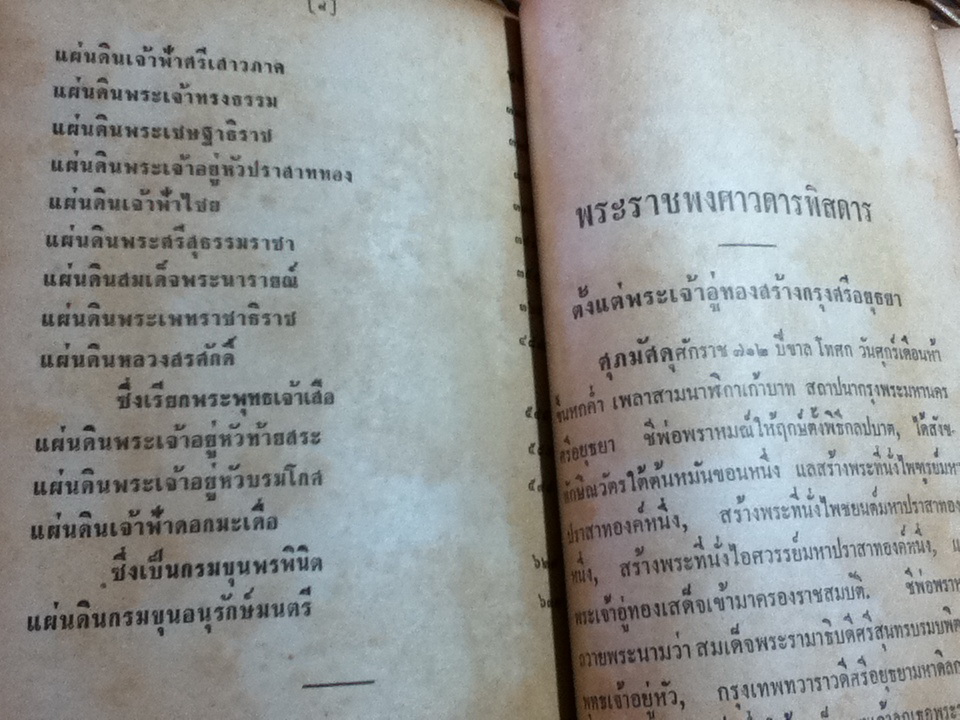 [๘]
แผ่นดินเจ้าฟ้าศรีเสาวภาค
แผ่นดินพระเจ้าทรงธรรม
แผ่นดินพระเชษฐาธิราช
แผ่นดินพระเจ้าอยู่หัวปราสาททอง
แผ่นดินเจ้าฟ้าไชย
แผ่นดินพระศรีสุธรรมราชา
แผ่นดินสมเด็จพระนารายณ์
แผ่นดินพระเพทราชาธิราช
แผ่นดินหลวงสรศักดิ์
ซึ่งเรียกพระพุทธเจ้าเสือ
แผ่นดินพระเจ้าอยู่หัวท้ายสระ
แผ่นดินพระเจ้าอยู่หัวบรมโกศ
แผ่นดินเจ้าฟ้าดอกมะเดื่อ
ซึ่งเป็นกรมขุนพรพินิต
แผ่นดินกรมขุนอนุรักษ์มนตรี
พระราชพงศาวดารพิสดาร
ตั้งแต่พระเจ้าอู่ทองสร้างกรุงศรีอยุธยา
ศุภมัสดุศักราช ๗๑๒ ปีขาล โทศก วันศุกร์เดือนห้า
ขึ้นหกค่ำ เพลาสามนาฬิกาเก้าบาท สถาปนากรุงพระมหานคร
ศรีอยุธยา ชีพ่อพราหมณ์ให้ฤกษ์ตั้งพิธีกลปบาต, ได้สังข-
ทักษิณวัตรใต้ต้นหมันขอนหนึ่ง แลสร้างพระที่นั่งไพฑูรย์มหา
ปราสาทองค์หนึ่ง, สร้างพระที่นั่งไพชยนต์มหาปราสาทอง
หนึ่ง, สร้างพระที่นั่งไอศวรรย์มหาปราสาทองค์หนึ่ง,
พระเจ้าอู่ทองเสด็จเข้ามาครองราชสมบัติ. ชีพ่อพราห
ถวายพระนามว่า สมเด็จพระรามาธิบดีศรีสุนทรบรมบพิต
พุทธเจ้าอยู่หัว, กรุงเทพทวาราวดีศรีอยุธยามหาดิลก